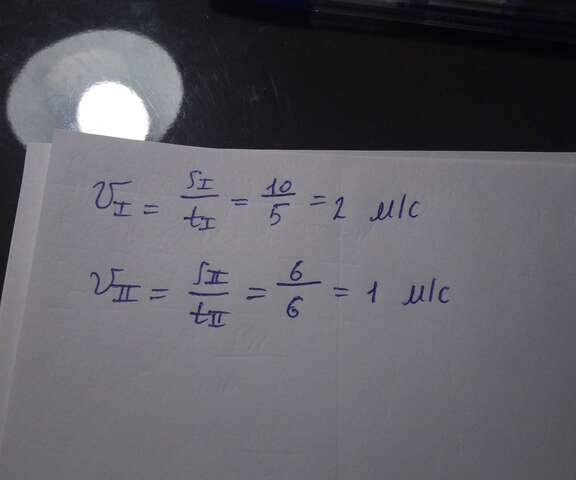 v_I = s_I/t_I = 10/5 = 2 м/с
v_II = s_II/t_II = 6/6 = 1 м/с